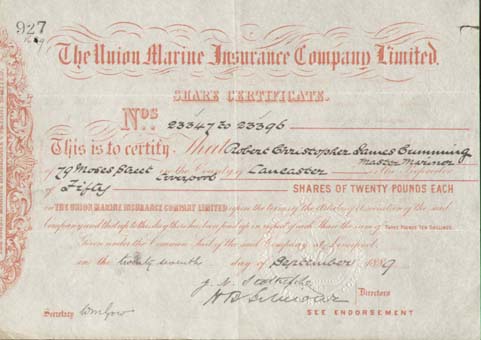 927
The Union Marine Insurance Company Limited.
SHARE CERTIFICATE.
Nos. 23347 to 23396
This is to certify That Robert Christopher James Cumming
Master Mariner
of 79 Moses Street Liverpool in the County of Lancaster is the Proprietor
of Fifty SHARES OF TWENTY POUNDS EACH
IN THE UNION MARINE INSURANCE COMPANY LIMITED upon the terms of the Articles of Association of the said
Company and that up to this day there has been paid up in respect of each Share the sum of THREE POUNDS TEN SHILLINGS.
Given under the Common Seal of the said Company at Liverpool
on the twenty seventh day of September 1889
Directors
Secretary
SEE ENDORSEMENT